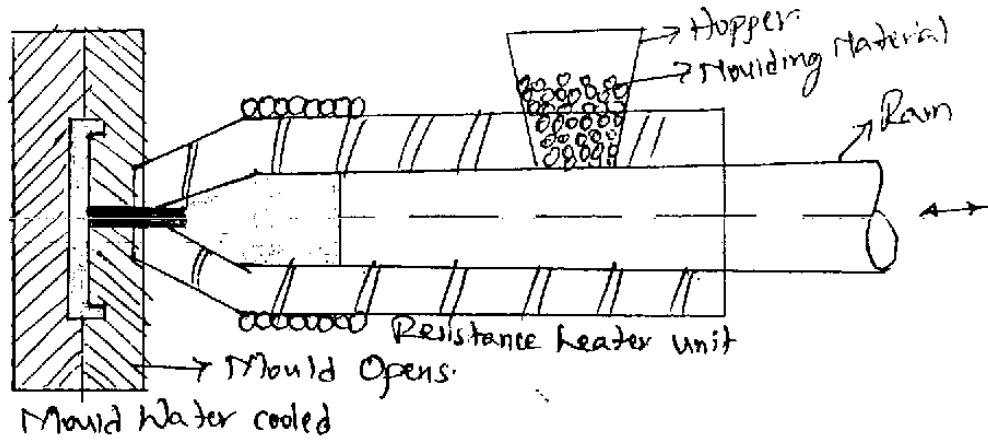 Hopper
Moulding Material
Ram
Resistance heater unit
Mould Opens.
Mould Water cooled